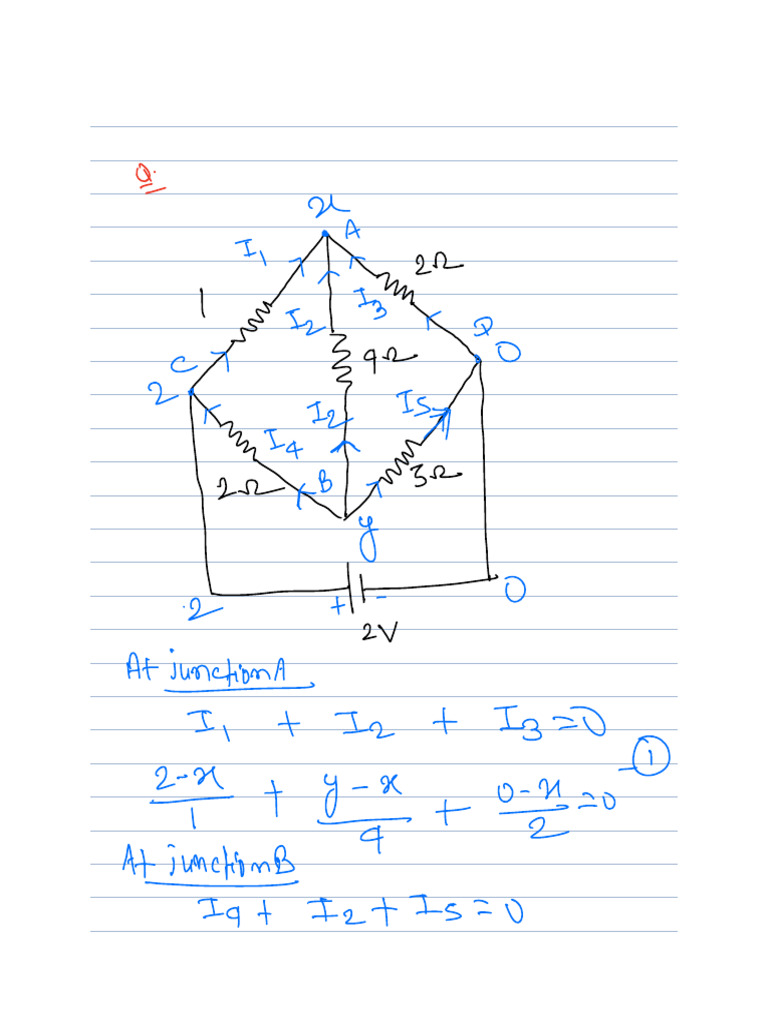 Q.
x
A
I1
2Ω
1
I2
I3
Q
0
C
4Ω
2
I2
I5
I4
2Ω
B
3Ω
y
2
+ -
0
2V
At junction A
I1 + I2 + I3 = 0
2-x/1 + y-x/4 + 0-x/2 = 0 - ①
At junction B
I4 + I2 + I5 = 0